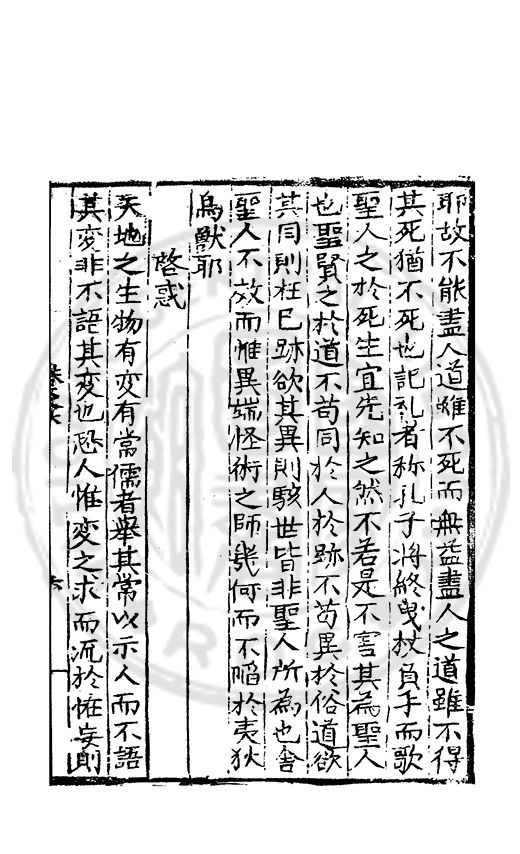 耶故不能盡人道雖不死而無益盡人之道雖不得
其死猶不死也記礼者称孔子将終曵杖負手而歌
聖人之於死生宜先知之然不若是不害其為聖人
也聖賢之於道不苟同於人於跡不苟異於俗道欲
其同則枉己跡欲其異則駭世皆非聖人所為也舎
聖人不效而惟異端怪術之師幾何而不䧟於夷狄
鳥獸耶
啓惑
天地之生物有变有常儒者舉其常以示人而不語
其变非不語其变也恐人惟变之求而流於恠妄則
卷之六
六